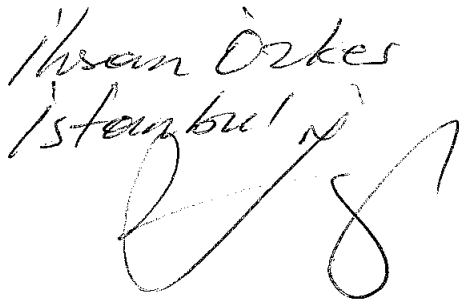 İhsan Özker
İstanbul